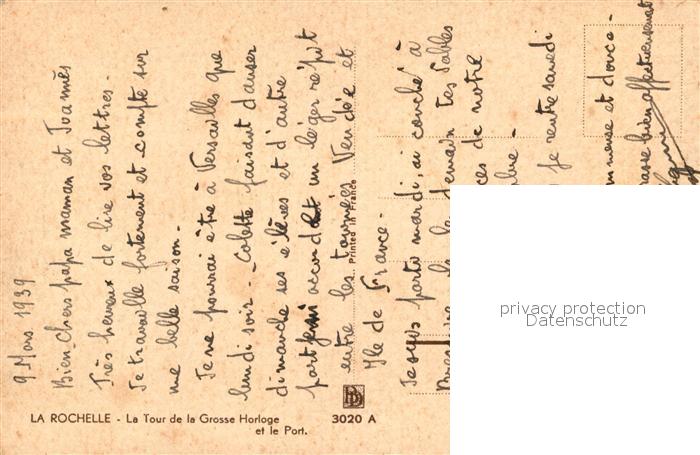 9 Mars 1939
Bien Chers papa maman et Joannès
Très heureux de lire vos lettres.
Je travaille fortement et compte sur
une belle saison.
Je ne pourrai être à Versailles que
lundi soir. Colette faisant danser
dimanche ses élèves et d'autre
part accordet un léger répit
entre les tournées Vendée et
Ile de France.
Je suis parti mardi, ai couché à
demain les Sables
ces de notre
bre.
Je rentre samedi
mmense et douce.
rasse bien affectueusement
LA ROCHELLE - La Tour de la Grosse Horloge
et le Port.
3020 A
Printed in France
privacy protection
Datenschutz